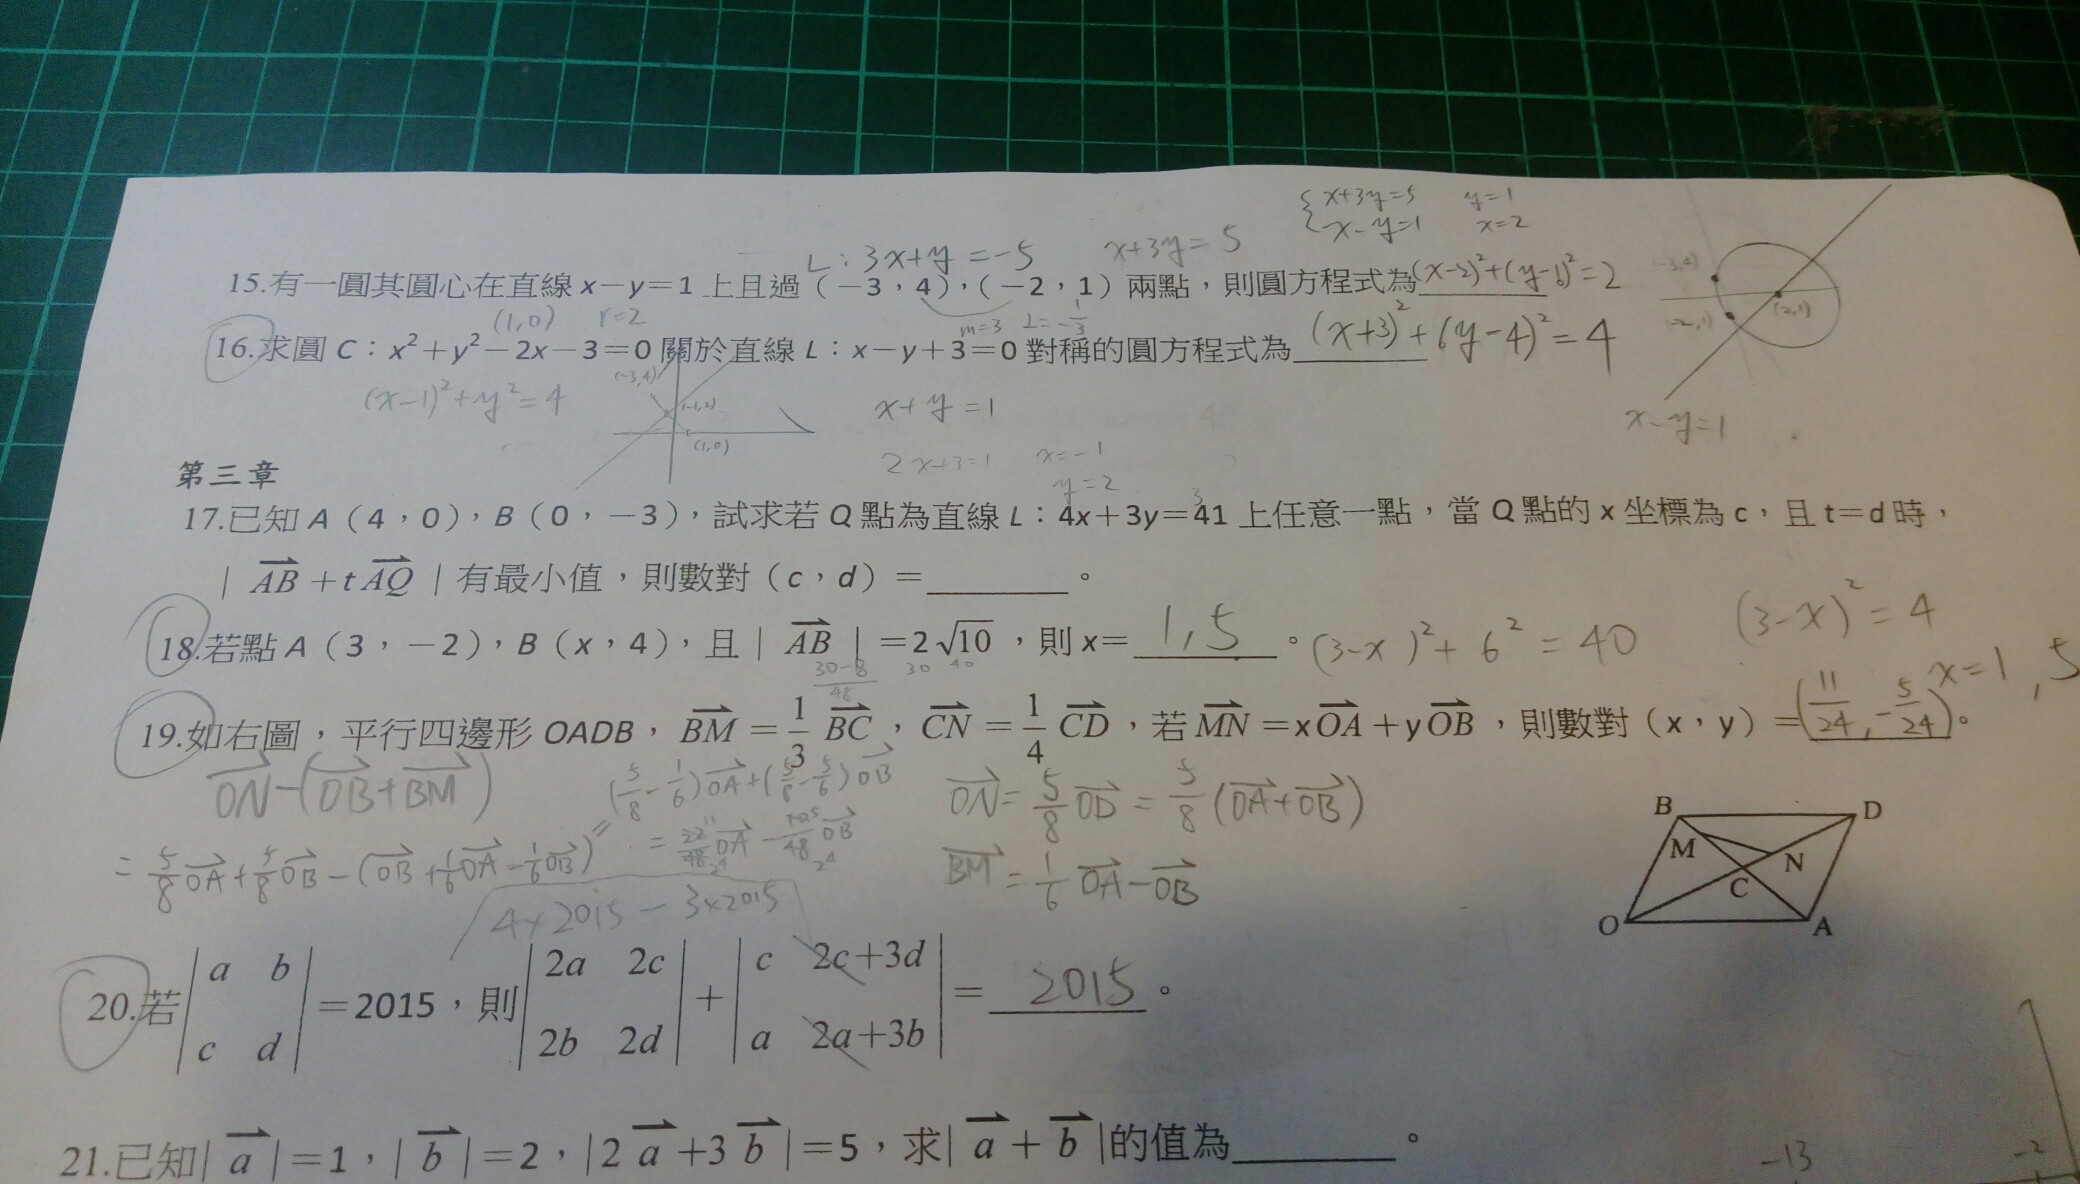 { x+3y=5 y=1
x-y=1 x=2
L：3x+y=-5 x+3y=5
15.有一圓其圓心在直線 x－y＝1 上且過（－3，4），（－2，1）兩點，則圓方程式為(x-2)²+(y-1)²=2
(-3,4)
(-2,1)
(2,1)
x-y=1
(1,0) r=2
m=3 L=-1/3
16.求圓 C：x²＋y²－2x－3＝0 關於直線 L：x－y＋3＝0 對稱的圓方程式為 (x+3)²+(y-4)²=4
(x-1)²+y²=4
(-3,4)
(-1,2)
(1,0)
x+y=1
2x+3=1 x=-1
y=2
第三章
17.已知 A（4，0），B（0，－3），試求若 Q 點為直線 L：4x＋3y＝41 上任意一點，當 Q 點的 x 坐標為 c，且 t＝d 時，
3
| AB⃗ ＋t AQ⃗ | 有最小值，則數對（c，d）＝________。
18.若點 A（3，－2），B（x，4），且 | AB⃗ | ＝2√10，則 x＝ 1,5 。(3-x)²+6²=40 (3-x)²=4
x=1,5
30-8/48 30 40
19.如右圖，平行四邊形 OADB，BM⃗＝1/3 BC⃗，CN⃗＝1/4 CD⃗，若 MN⃗＝xOA⃗＋yOB⃗，則數對（x，y）＝(11/24,-5/24)。
ON⃗-(OB⃗+BM⃗)
(5/8-1/6)OA⃗+(5/8-5/6)OB⃗
ON⃗=5/8OD⃗=5/8(OA⃗+OB⃗)
=5/8OA⃗+5/8OB⃗-(OB⃗+1/6OA⃗-1/6OB⃗)=
BM⃗=1/6OA⃗-OB⃗
B
D
M
N
C
O
A
4x2015-3x2015
20.若|a b; c d|＝2015，則|2a 2c; 2b 2d|＋|c 2c+3d; a 2a+3b|＝ 2015 。
21.已知| a⃗ |＝1，| b⃗ |＝2，|2 a⃗ ＋3 b⃗ |＝5，求| a⃗ ＋ b⃗ |的值為________。
-13
-2